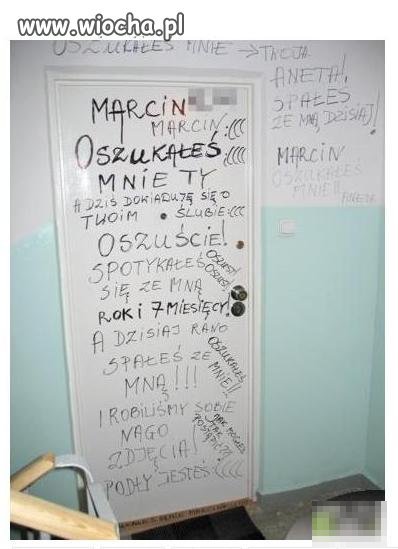 www.wiocha.pl
OSZUKAŁEŚ MNIE → TWOJA
ANETA!
SPAŁEŚ
ZE MNĄ DZISIAJ!
MARCIN
OSZUKAŁEŚ
MNIE!!
ANETA
MARCIN
MARCIN :(((
OSZUKAŁEŚ :((((
MNIE TY
A DZIŚ DOWIADUJĘ SIĘ O
TWOIM ŚLUBIE :(((
OSZUŚCIE!
SPOTYKAŁEŚ
OSZUST!
OSZUST!
SIĘ ZE MNĄ
ROK I 7 MIESIĘCY!
A DZISIAJ RANO
SPAŁEŚ ZE
MNĄ!!!
OSZUKAŁEŚ
MNIE!!
I ROBILIŚMY SOBIE
NAGO
ZDJĘCIA!
JAK MOGŁEŚ
TAK
POSTĄPIĆ?!
PODŁY JESTEŚ :((((